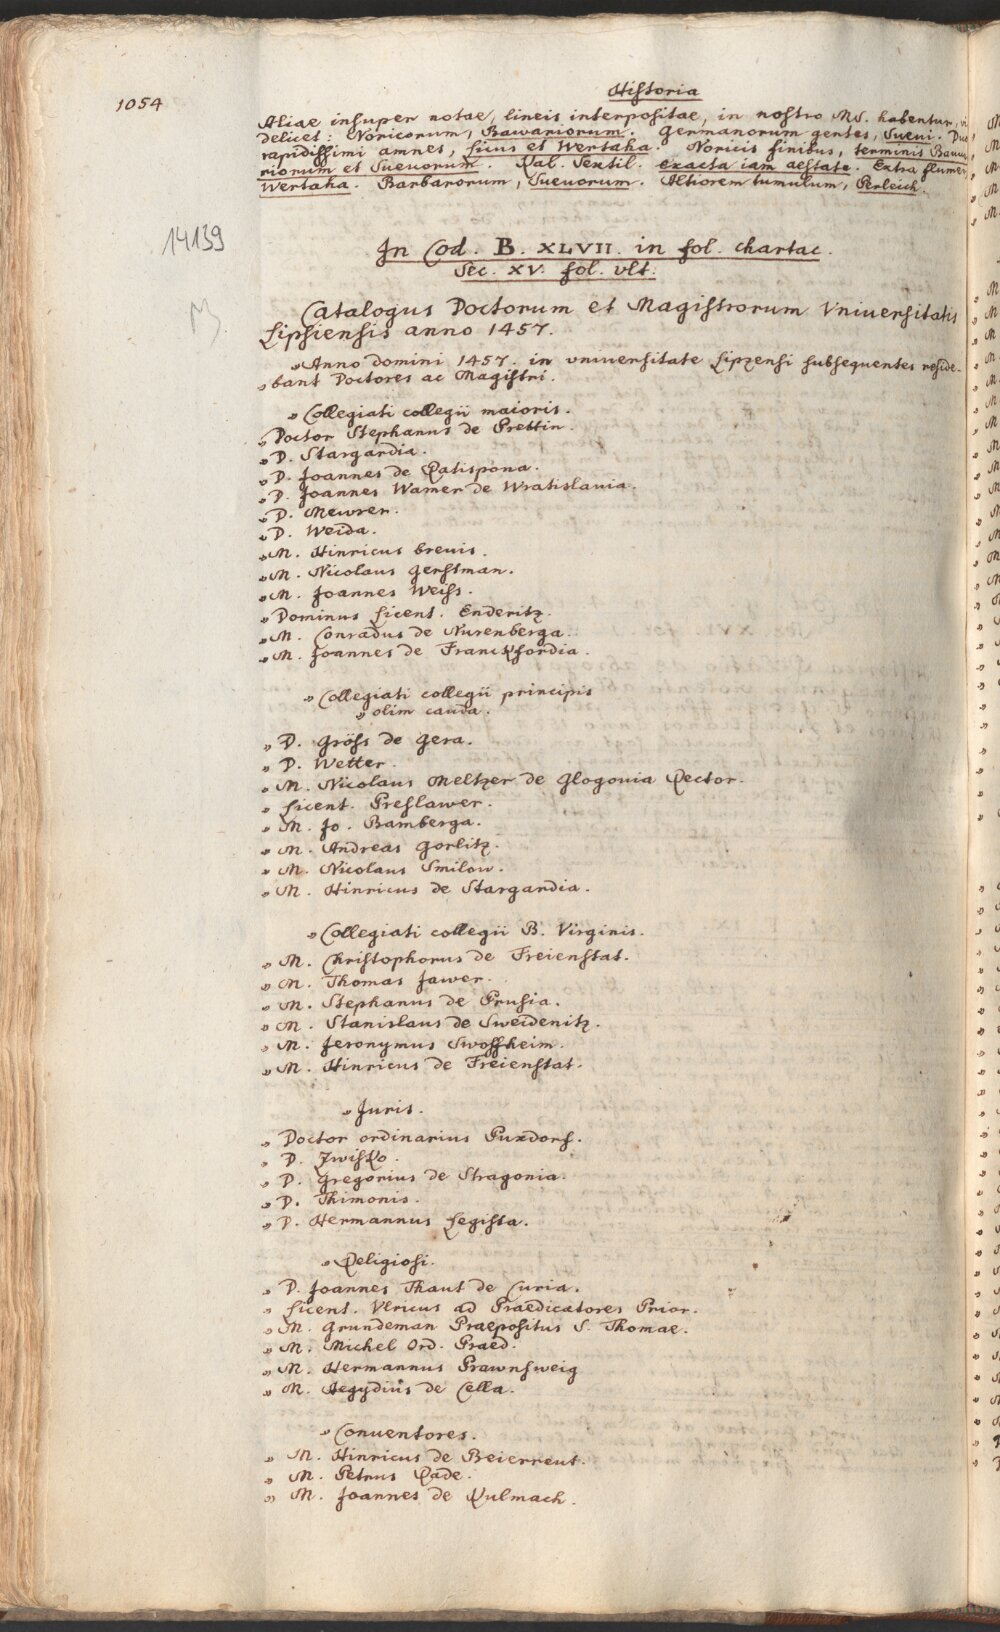 Historia
1054
Aliae insuper notae, lineis interpositae, in nostro MS. habentur, vi
delicet: Noricorum, Bawariorum. Germanorum gentes, Sueui. Duo
rapidissimi amnes, Licus et Wertaha. Noricis finibus, terminis Bauua
riorum et Sueuorum. Kal. Sextil. exacta iam aestate. Extra flumen
Wertaha. Barbarorum, Sueuorum. Altiorem tumulum, Perleich.
14139
In Cod. B. XLVII. in fol. chartac.
Sec. XV. fol. vlt.
M
Catalogus Doctorum et Magistrorum Vniuersitatis
Lipsiensis anno 1457.
„Anno Domini 1457. in vniuersitate Lipzensi subsequentes reside-
„bant Doctores ac Magistri.
„Collegiati collegii maioris.
„Doctor Stephanus de Prettin.
„D. Stargardia.
„D. Joannes de Ratispona.
„D. Joannes Wamer de Wratislauia.
„D. Mewrer.
„D. Weida.
„M. Hinricus breuis.
„M. Nicolaus Gerstman.
„M. Joannes Weiss.
„Dominus Licent. Enderitz.
„M. Conradus de Nurenberga.
„M. Joannes de Franckfordia.
„Collegiati collegii principis
„olim cauda.
„D. Gröss de Gera.
„D. Wetter.
„M. Nicolaus Meltzer de Glogouia Rector.
„Licent. Preslawer.
„M. Jo. Bamberga.
„M. Andreas Gorlitz.
„M. Nicolaus Smilow.
„M. Hinricus de Stargardia.
„Collegiati collegii B. Virginis.
„M. Christophorus de Freienstat.
„M. Thomas Jawer.
„M. Stephanus de Prusia.
„M. Stanislaus de Sweidenitz.
„M. Jeronymus Swoffheim.
„M. Hinricus de Freienstat.
„Juris.
„Doctor ordinarius Puxdorf.
„D. Zwisko.
„D. Gregorius de Stragonia.
„D. Thimonis.
„D. Hermannus Legista.
„Religiosi.
„D. Joannes Thaut de Curia.
„Licent. Vlricus ad Praedicatores Prior.
„M. Grundeman Praepositus S. Thomae.
„M. Michel Ord. Praed.
„M. Hermannus Prawnsweig
„M. Aegydius de Cella.
„Conuentores.
„M. Hinricus de Beierreut.
„M. Petrus Rade.
„M. Joannes de Kulmach.